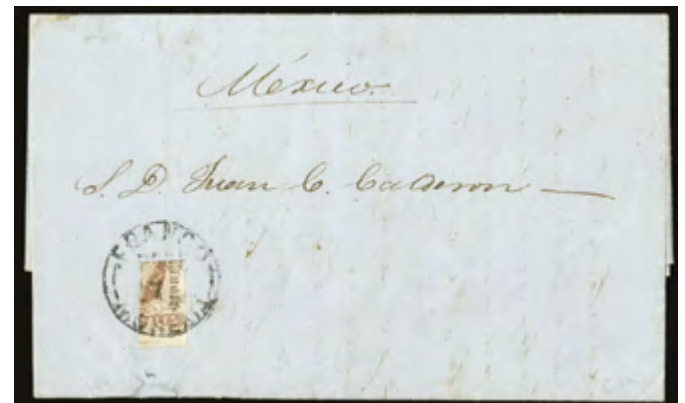 México
S. D. Juan C. Calderon
FRANCO